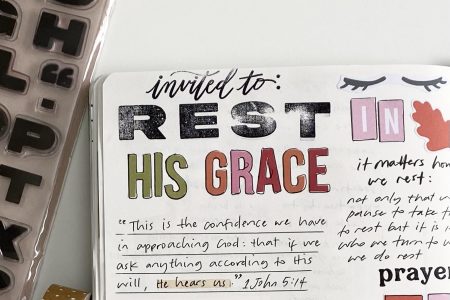 invited to:
REST IN
HIS GRACE
"This is the confidence we have
in approaching God: that if we
ask anything according to His
will, He hears us." 1 John 5:14
it matters how
we rest:
not only that we
pause to take
to rest but it is
who we turn to
we do rest
prayer